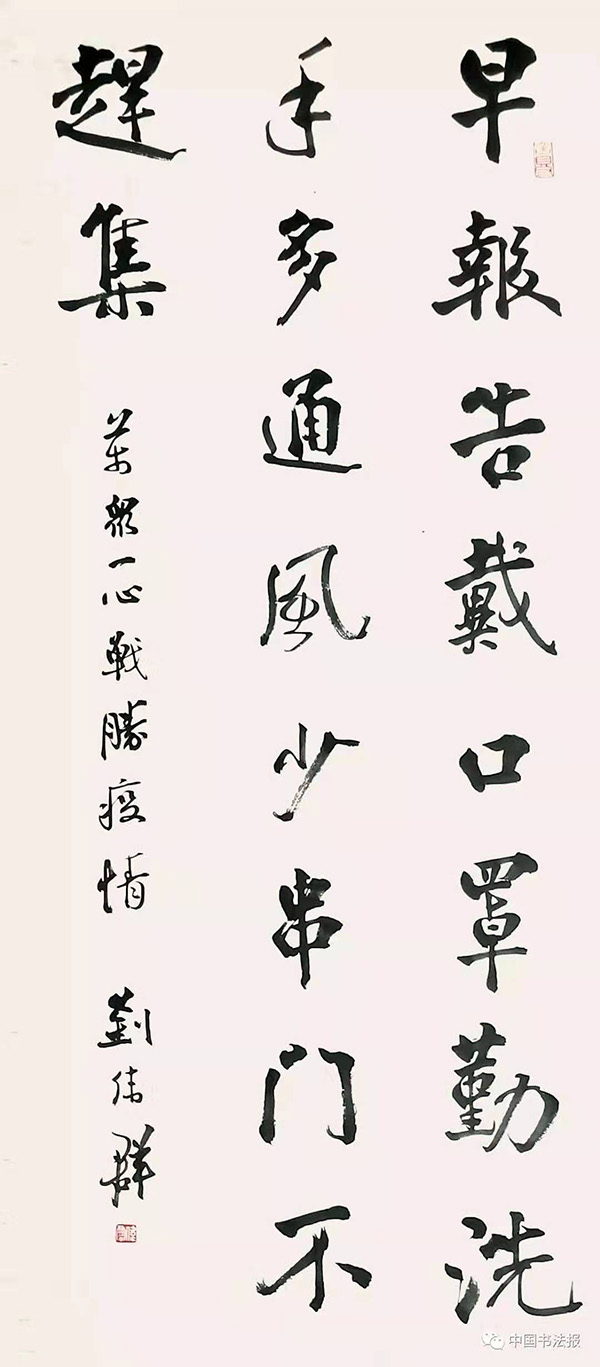 早報告戴口罩勤洗
手多通風少串门不
趕集
萬眾一心戰勝疫情 劉偉群
中国书法报